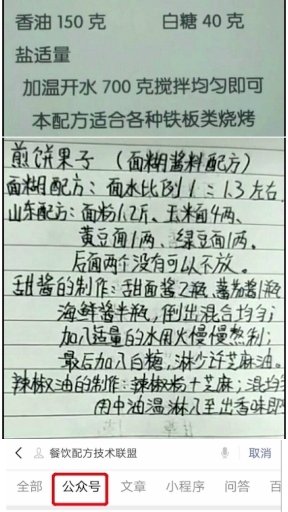 香油 150 克 白糖 40 克
盐适量
加温开水 700 克搅拌均匀即可
本配方适合各种铁板类烧烤
煎饼果子 (面糊酱料配方)
面糊配方: 面水比例 1:1.3 左右
山东配方: 面粉1.2斤、玉米面4两、
黄豆面1两、绿豆面1两。
后面两个没有可以不放。
甜酱的制作: 甜面酱2瓶、蕃茄酱1瓶
海鲜酱半瓶,倒出混合均匀;
加入适量的水用火慢慢熬制;
最后加入白糖,淋少许芝麻油。
辣椒油的制作: 辣椒粉+芝麻;混均匀
用中油温淋入至出香味即
餐饮配方技术联盟 取消
全部 公众号 文章 小程序 问答 百